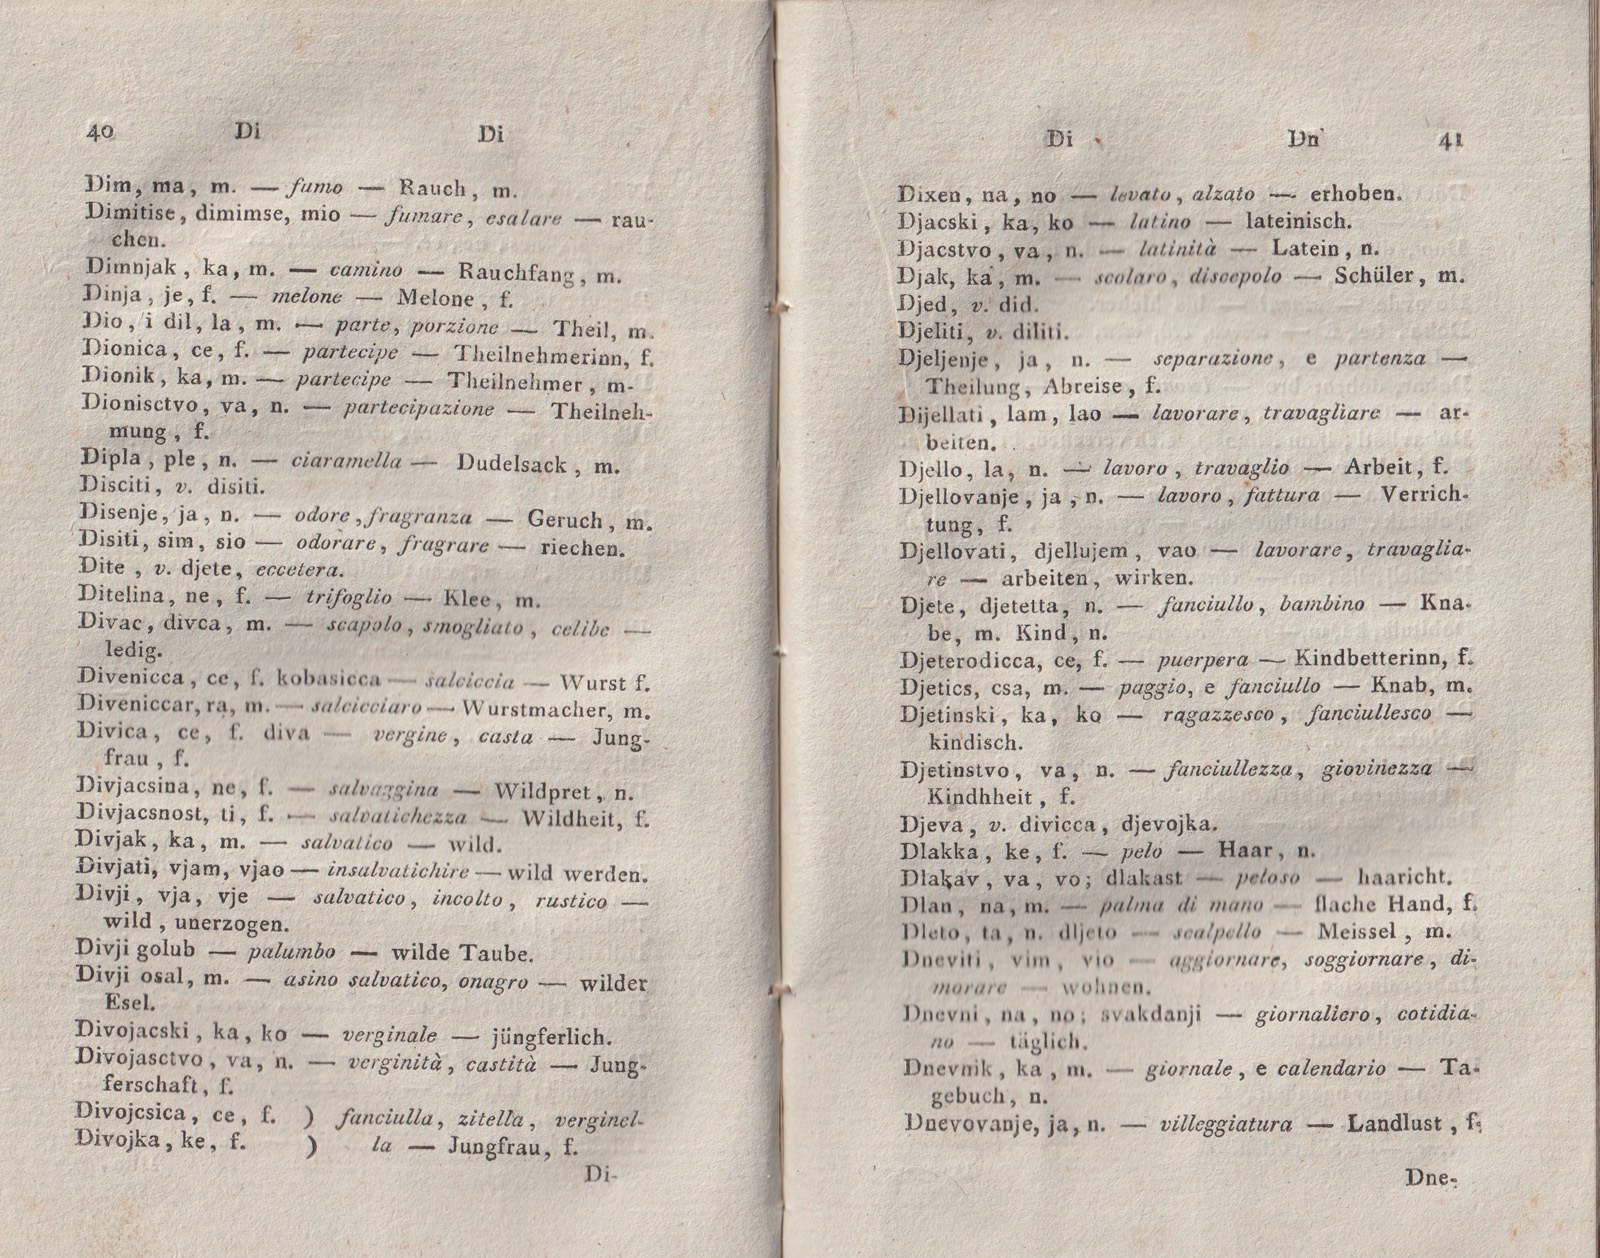 40 Di Di
Dim, ma, m. — fumo — Rauch, m.
Dimitise, dimimse, mio — fumare, esalare — rau-
chen.
Dimnjak, ka, m. — camino — Rauchfang, m.
Dinja, je, f. — melone — Melone, f.
Dio, i dil, la, m. — parte, porzione — Theil, m.
Dionica, ce, f. — partecipe — Theilnehmerinn, f.
Dionik, ka, m. — partecipe — Theilnehmer, m-
Dionisctvo, va, n. — partecipazione — Theilneh-
mung, f.
Dipla, ple, n. — ciaramella — Dudelsack, m.
Disciti, v. disiti.
Disenje, ja, n. — odore, fragranza — Geruch, m.
Disiti, sim, sio — odorare, fragrare — riechen.
Dite, v. djete, eccetera.
Ditelina, ne, f. — trifoglio — Klee, m.
Divac, divca, m. — scapolo, smogliato, celibe —
ledig.
Divenicca, ce, f. kobasicca — salciccia — Wurst f.
Diveniccar, ra, m. — salcicciaro — Wurstmacher, m.
Divica, ce, f. diva — vergine, casta — Jung-
frau, f.
Divjacsina, ne, f. — salvaggina — Wildpret, n.
Divjacsnost, ti, f. — salvatichezza — Wildheit, f.
Divjak, ka, m. — salvatico — wild.
Divjati, vjam, vjao — insalvatichire — wild werden.
Divji, vja, vje — salvatico, incolto, rustico —
wild, unerzogen.
Divji golub — palumbo — wilde Taube.
Divji osal, m. — asino salvatico, onagro — wilder
Esel.
Divojacski, ka, ko — verginale — jüngferlich.
Divojasctvo, va, n. — verginità, castità — Jung-
ferschaft, f.
Divojcsica, ce, f. ) fanciulla, zitella, verginel-
Divojka, ke, f. ) la — Jungfrau, f.
Di-
Di Dn 41
Dixen, na, no — levato, alzato — erhoben.
Djacski, ka, ko — latino — lateinisch.
Djacstvo, va, n. — latinità — Latein, n.
Djak, ka, m. — scolaro, discepolo — Schüler, m.
Djed, v. did.
Djeliti, v. diliti.
Djeljenje, ja, n. — separazione, e partenza —
Theilung, Abreise, f.
Dijellati, lam, lao — lavorare, travagliare — ar-
beiten.
Djello, la, n. — lavoro, travaglio — Arbeit, f.
Djellovanje, ja, n. — lavoro, fattura — Verrich-
tung, f.
Djellovati, djellujem, vao — lavorare, travaglia-
re — arbeiten, wirken.
Djete, djetetta, n. — fanciullo, bambino — Kna-
be, m. Kind, n.
Djeterodicca, ce, f. — puerpera — Kindbetterinn, f.
Djetics, csa, m. — paggio, e fanciullo — Knab, m.
Djetinski, ka, ko — ragazzesco, fanciullesco —
kindisch.
Djetinstvo, va, n. — fanciullezza, giovinezza —
Kindhheit, f.
Djeva, v. divicca, djevojka.
Dlakka, ke, f. — pelo — Haar, n.
Dlakav, va, vo; dlakast — peloso — haaricht.
Dlan, na, m. — palma di mano — flache Hand, f.
Dleto, ta, n. dljeto — scalpello — Meissel, m.
Dneviti, vim, vio — aggiornare, soggiornare, di-
morare — wohnen.
Dnevni, na, no; svakdanji — giornaliero, cotidia-
no — täglich.
Dnevnik, ka, m. — giornale, e calendario — Ta-
gebuch, n.
Dnevovanje, ja, n. — villeggiatura — Landlust, f.
Dne-